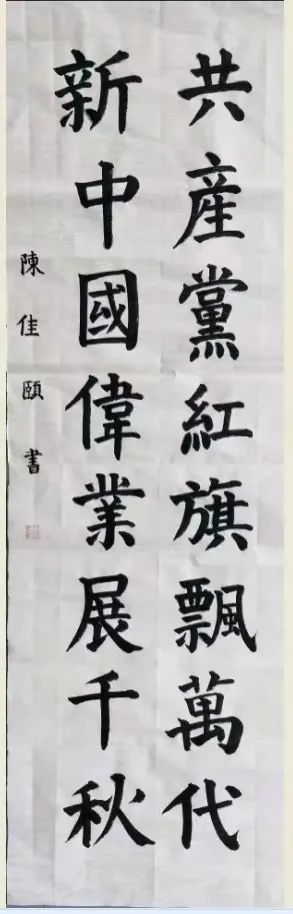 共產黨紅旗飄萬代
新中國偉業展千秋
陳佳頤書